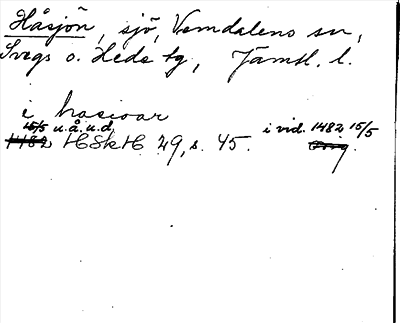 Håsjön, sjö, Vemdalens sn,
Svegs o. Heds tg, Jämtl. l.
i hasioar
15/5 u.å.u.d. i vid. 1482 15/5
1482 HSkH 29, s. 45. Orig.